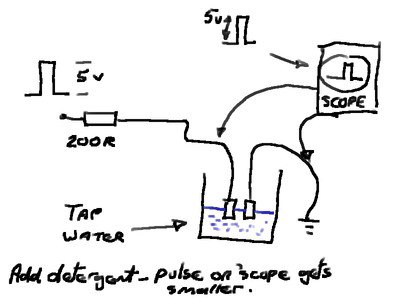 5v
5v
SCOPE
200R
TAP
WATER
Add detergent - pulse on 'scope gets
smaller.